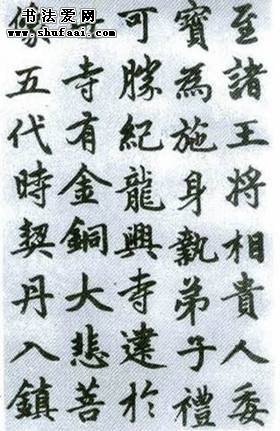 书法爱网
www.shufaai.com
至諸王將相貴人委
寶為施身執弟子禮
可勝紀龍興寺建於
寺有金銅大悲菩
像五代時契丹入鎮